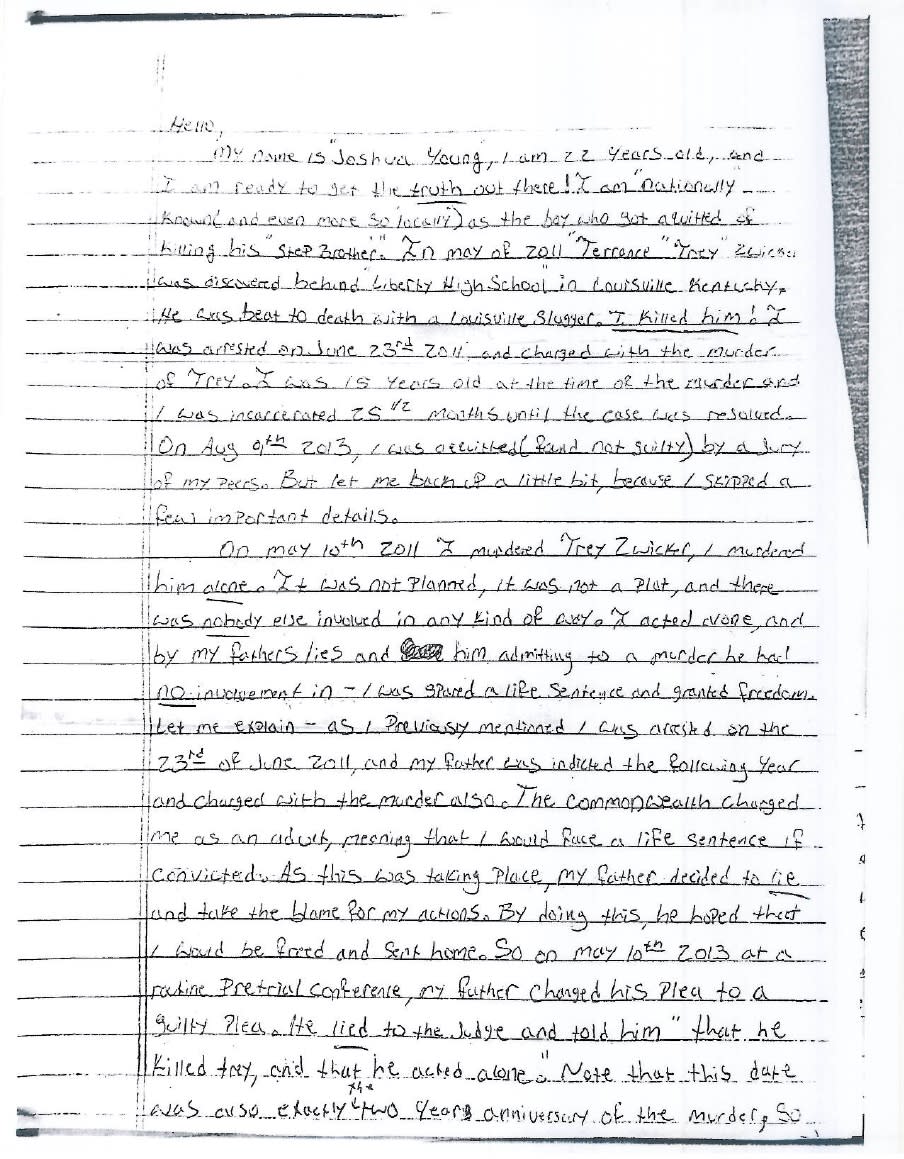 Hello,
My name is "Joshua Young, I am 22 years old, and
I am ready to get the truth out there! I am "nationally
known (and even more so locally) as the boy who got aquitted of
killing his "Step Brother". In may of 2011 "Terrance" "Trey" Zwicker
was discovered behind "Liberty High School" in Louisville Kentucky.
He was beat to death with a Louisville Slugger. I killed him! I
was arrested on June 23rd 2011 and charged with the murder
of Trey. I was 15 years old at the time of the murder and
I was incarcerated 25 1/2 months until the case was resolved.
On Aug 9th 2013, I was acquitted (found not guilty) by a Jury
of my peers. But let me back up a little bit, because I skipped a
few important details.
On may 10th 2011 I murdered Trey Zwicker, I murdered
him alone. It was not planned, it was not a plot, and there
was nobody else involved in any kind of way. I acted alone, and
by my fathers lies and him admitting to a murder he had
no involvement in - I was spared a life sentence and granted freedom.
Let me explain - as I previously mentioned I was arrested on the
23rd of June 2011, and my father was indicted the following year
and charged with the murder also. The commonwealth charged
me as an adult, meaning that I would face a life sentence if
convicted. As this was taking place, my father decided to lie
and take the blame for my actions. By doing this, he hoped that
I would be freed and sent home. So on may 10th 2013 at a
routine pretrial conference, my father changed his plea to a
guilty plea. He lied to the Judge and told him "that he
killed trey, and that he acted alone." Note that this date
was also exactly the two years anniversary of the murder, so